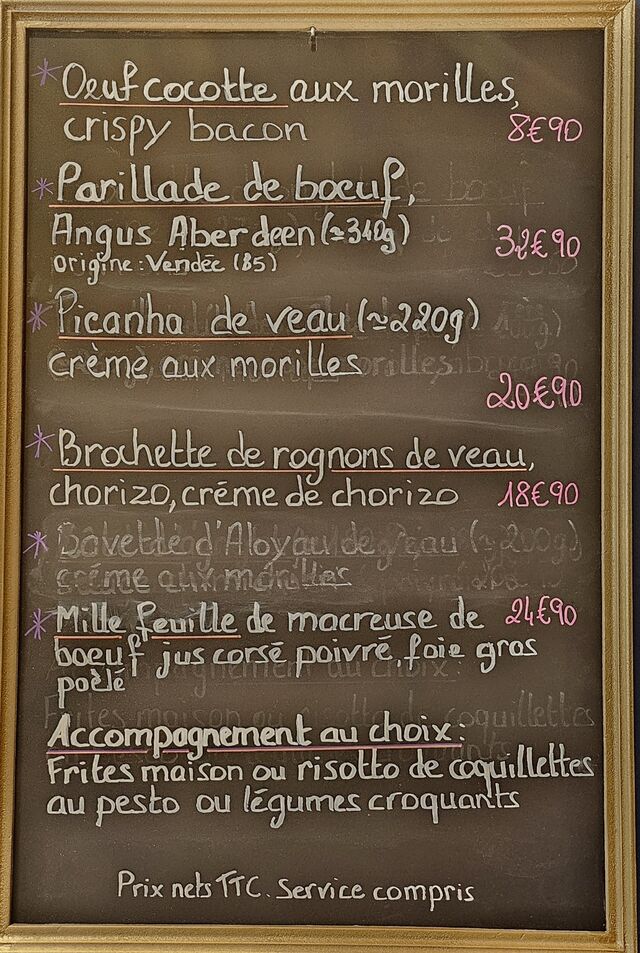 * Oeuf cocotte aux morilles,
crispy bacon 8€90
* Parillade de boeuf,
Angus Aberdeen (≃340g)
origine: Vendée (85) 32€90
* Picanha de veau (≃220g)
crème aux morilles
20€90
* Brochette de rognons de veau,
chorizo, créme de chorizo 18€90
* Bavette d'Aloyau de (≃200g)
créme aux morilles
* Mille feuille de macreuse de 24€90
boeuf jus corsé poivré, foie gras
poêlé
Accompagnement au choix:
Frites maison ou risotto de coquillettes
au pesto ou légumes croquants
Prix nets TTC. Service compris